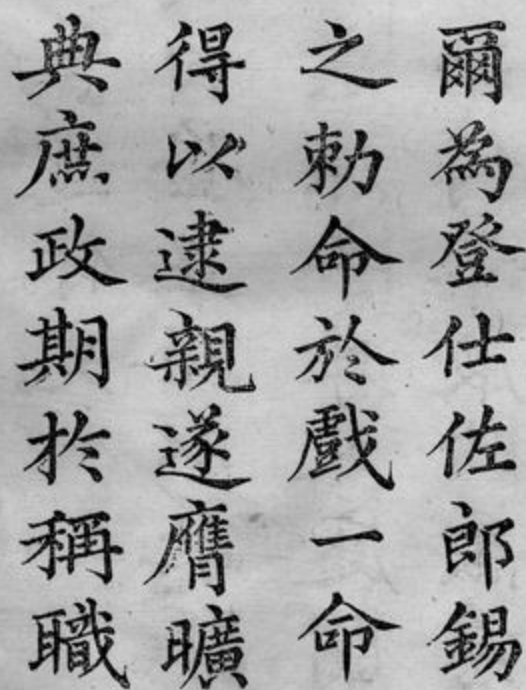 爾為登仕佐郎錫
之勅命於戲一命
得以逮親遂膺曠
典庶政期於稱職